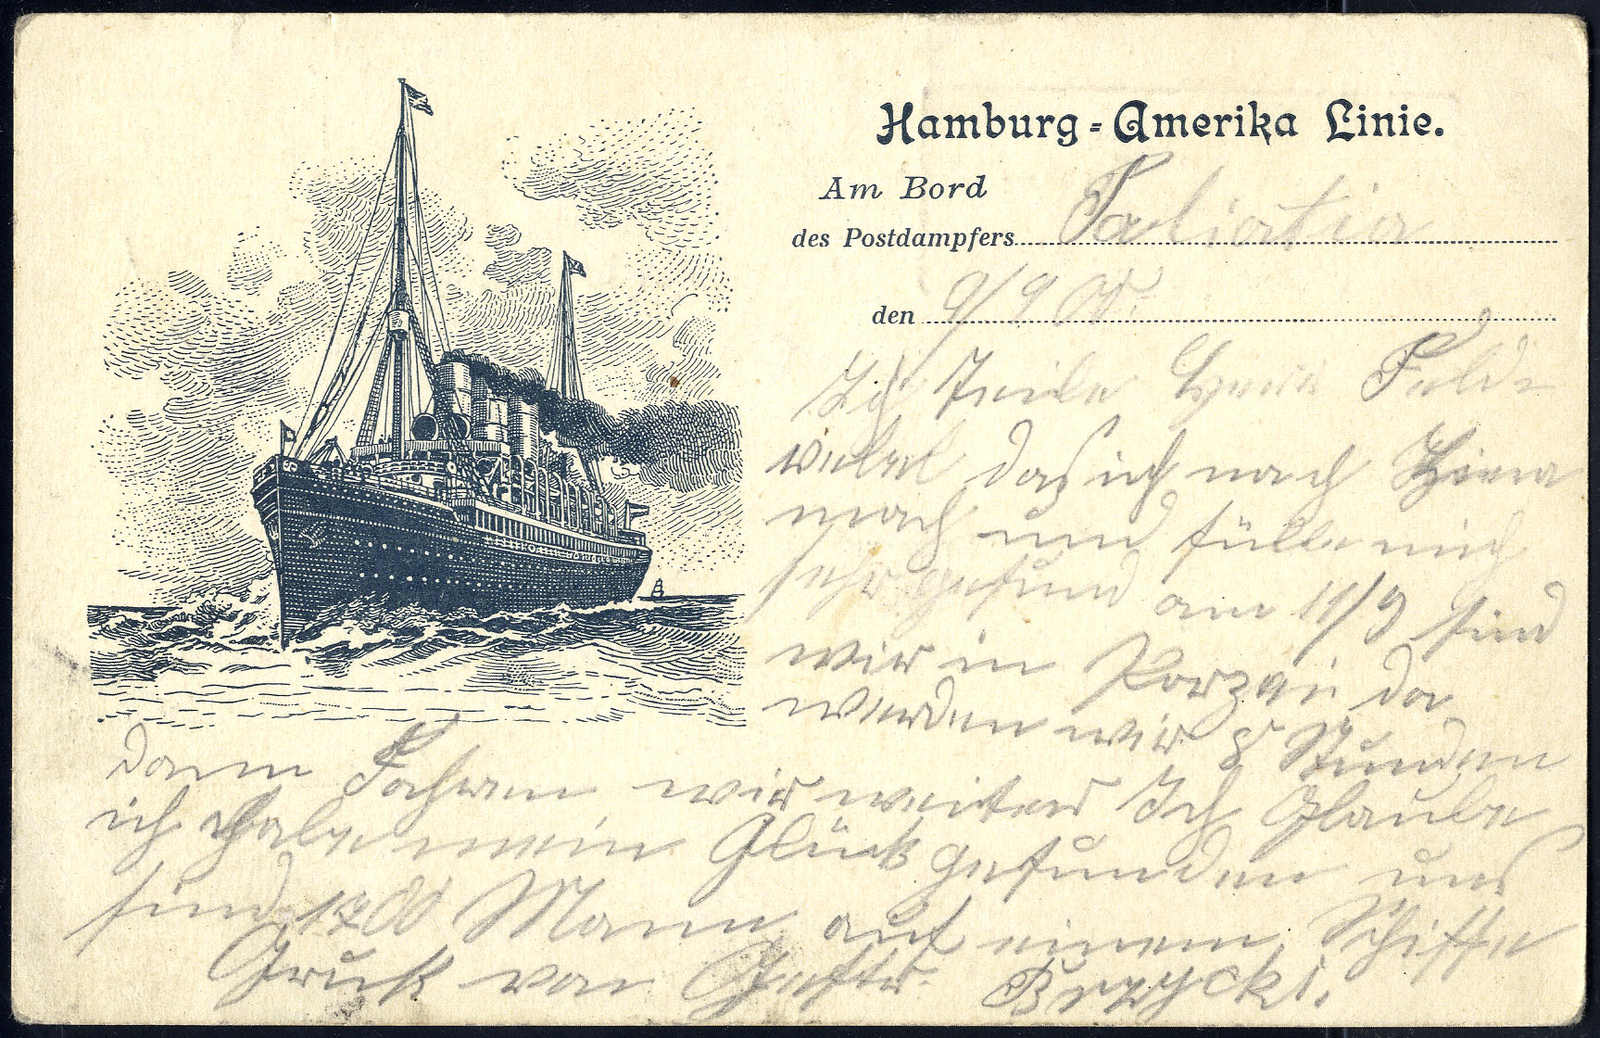 Hamburg-Amerika Linie.
Am Bord
des Postdampfers Paliatia
den 9/9 00.
Ich Teile Herrn Feld-
webel das ich nach Hiena
mach und fülle mich
sehr gesund am 11/9 sind
wir in Porzai da
werden wir 8 Stunden
dann Fahren wir weiter Ich Glaube
ich habe mein Glück gefunden uns
sind 1700 Mann auf einem Schiffe
Gruß von Geftr. Brzycki.